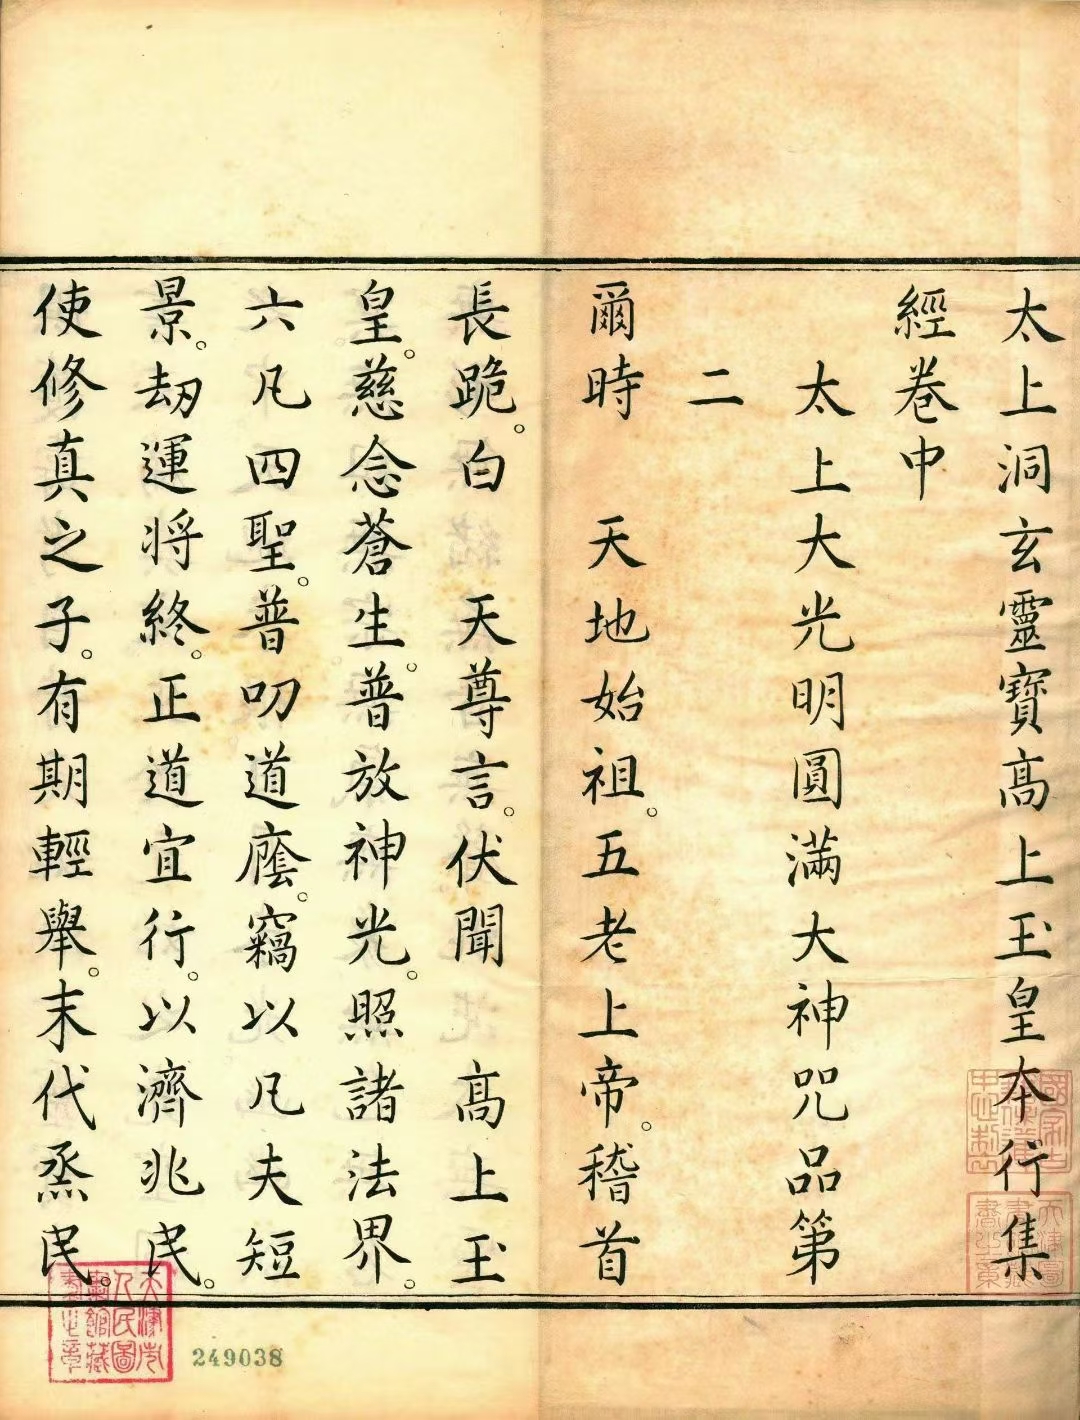 太上洞玄靈寶高上玉皇本行集
經卷中
太上大光明圓滿大神咒品第
二
爾時　天地始祖。五老上帝。稽首
長跪。白　天尊言。伏聞　高上玉
皇。慈念蒼生。普放神光。照諸法界。
六凡四聖。普叨道廕。竊以凡夫短
景。劫運將終。正道宜行。以濟兆民。
使修真之子。有期輕舉。末代烝民。
天津市
人民圖
書館藏
書之章
249038